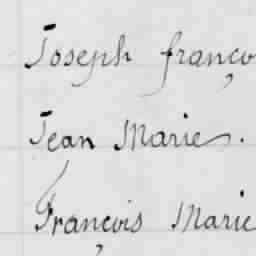 Joseph franço
Jean Marie.
François Marie